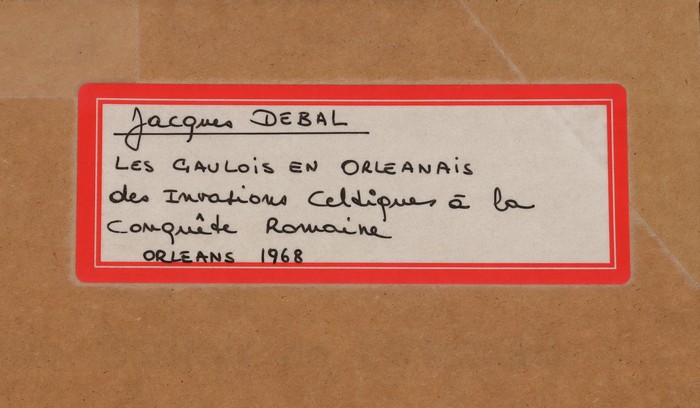 Jacques DEBAL
LES GAULOIS EN ORLEANAIS
des Invasions Celtiques à la
Conquête Romaine
ORLEANS 1968